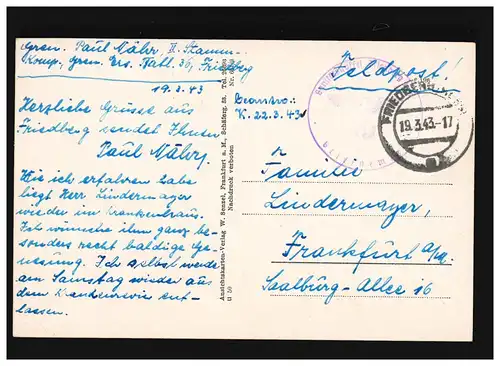 Gren. Paul Nährj, II. Stamm-
Komp., Gren. Ers. Batl. 36, Friedberg
19.3.43
Herzliche Grüsse aus
Friedberg sendet Ihnen
Paul Nährj.
Wie ich erfahren habe
liegt Herr Lindermayer
wieder im Krankenhaus.
Ich wünsche ihm ganz be-
sonders recht baldige Ge-
nesung. Ich selbst werde
am Samstag wieder aus
dem Krankenrevier ent-
lassen.
Ansichtskarten-Verlag W. Senzel, Frankfurt a. M., Schäferg. 33, Tel.
Nachdruck verboten
Feldpost!
Beantw.:
K. 22.3.43
FRIEDBERG
19.3.43.-17
Familie
Lindermayer,
Frankfurt a/M.
Saalburg-Allee 16